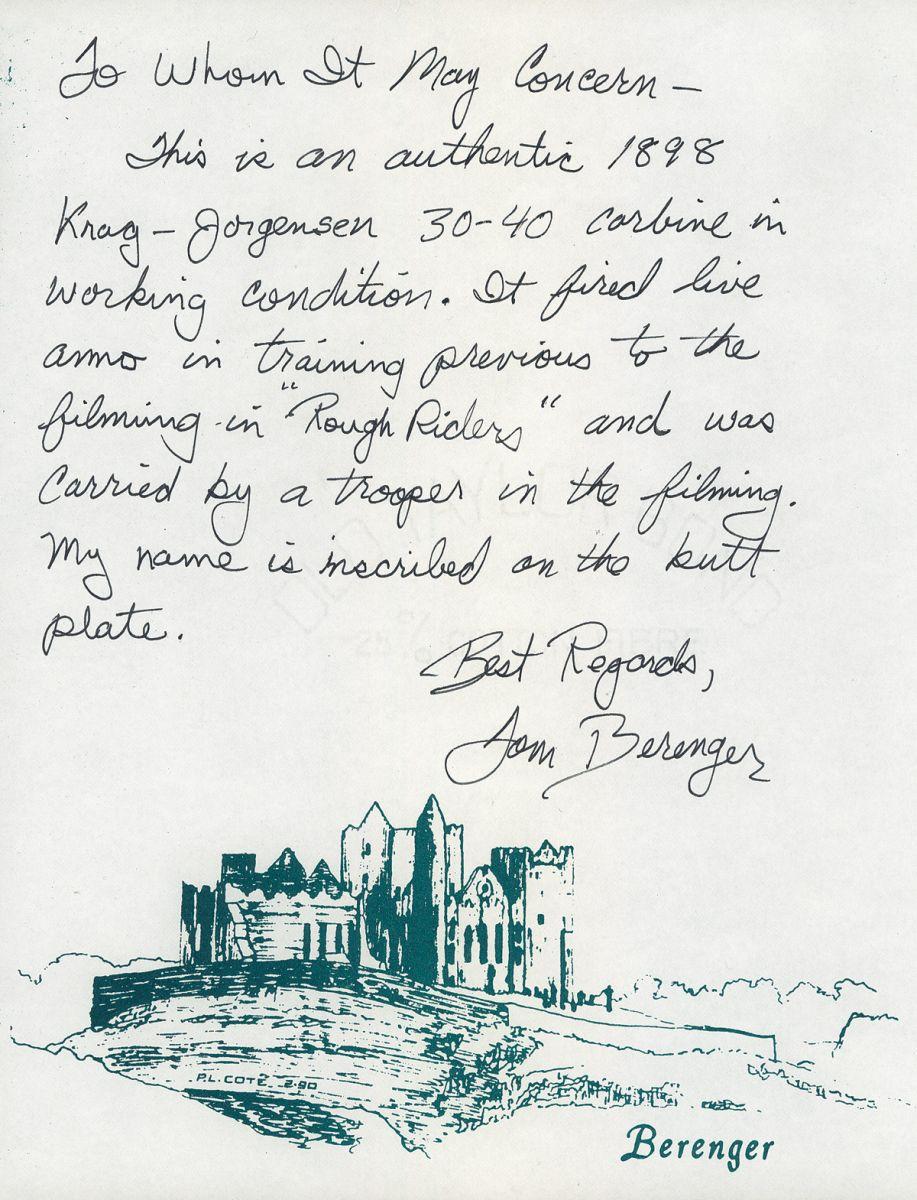 To Whom It May Concern –
This is an authentic 1898
Krag – Jorgensen 30-40 carbine in
working condition. It fired live
ammo in training previous to the
filming in "Rough Riders" and was
carried by a trooper in the filming.
My name is inscribed on the butt
plate.
Best Regards,
Tom Berenger
P.L. COTÉ 2-90
Berenger